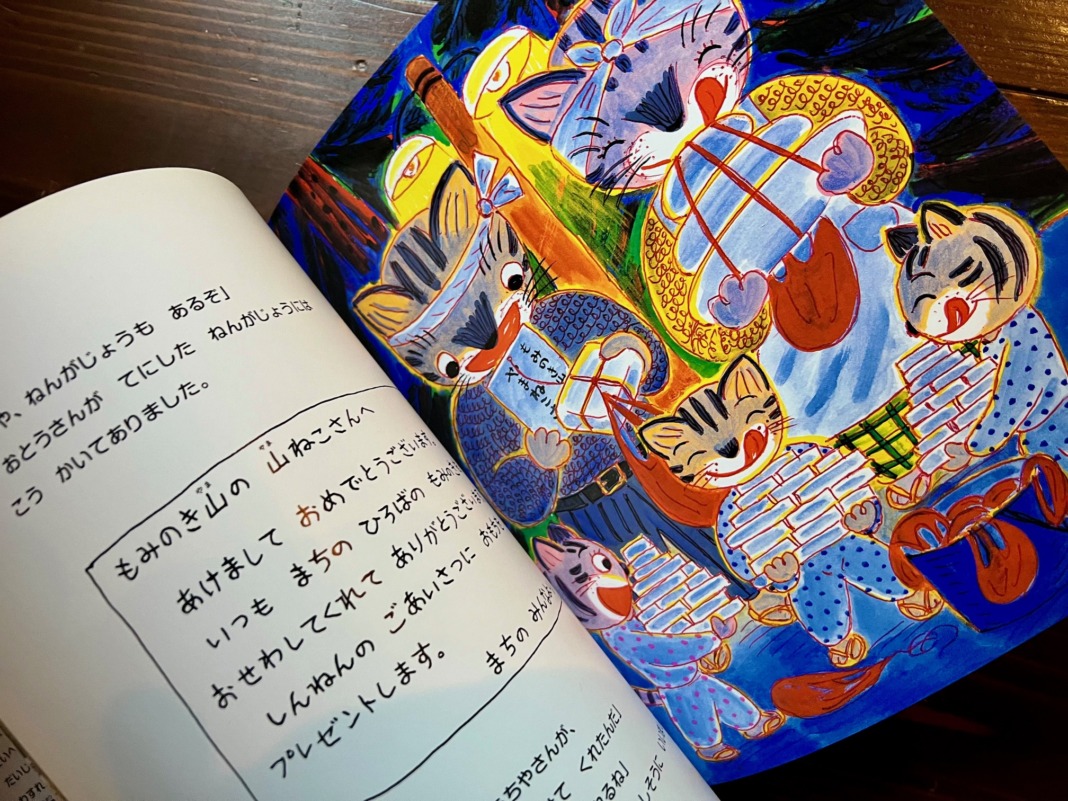 や、ねんがじょうも あるぞ」
おとうさんが てにした ねんがじょうには
こう かいてありました。
もみのき山の 山ねこさんへ
あけまして おめでとうございます。
いつも まちの ひろばの もみのき
おせわしてくれて ありがとうございま
しんねんの ごあいさつに おもち
プレゼントします。
まちの みんなよ
ちやさんが、
て くれたんだ」
るね」
しそうに
もみのき山
やまねこ